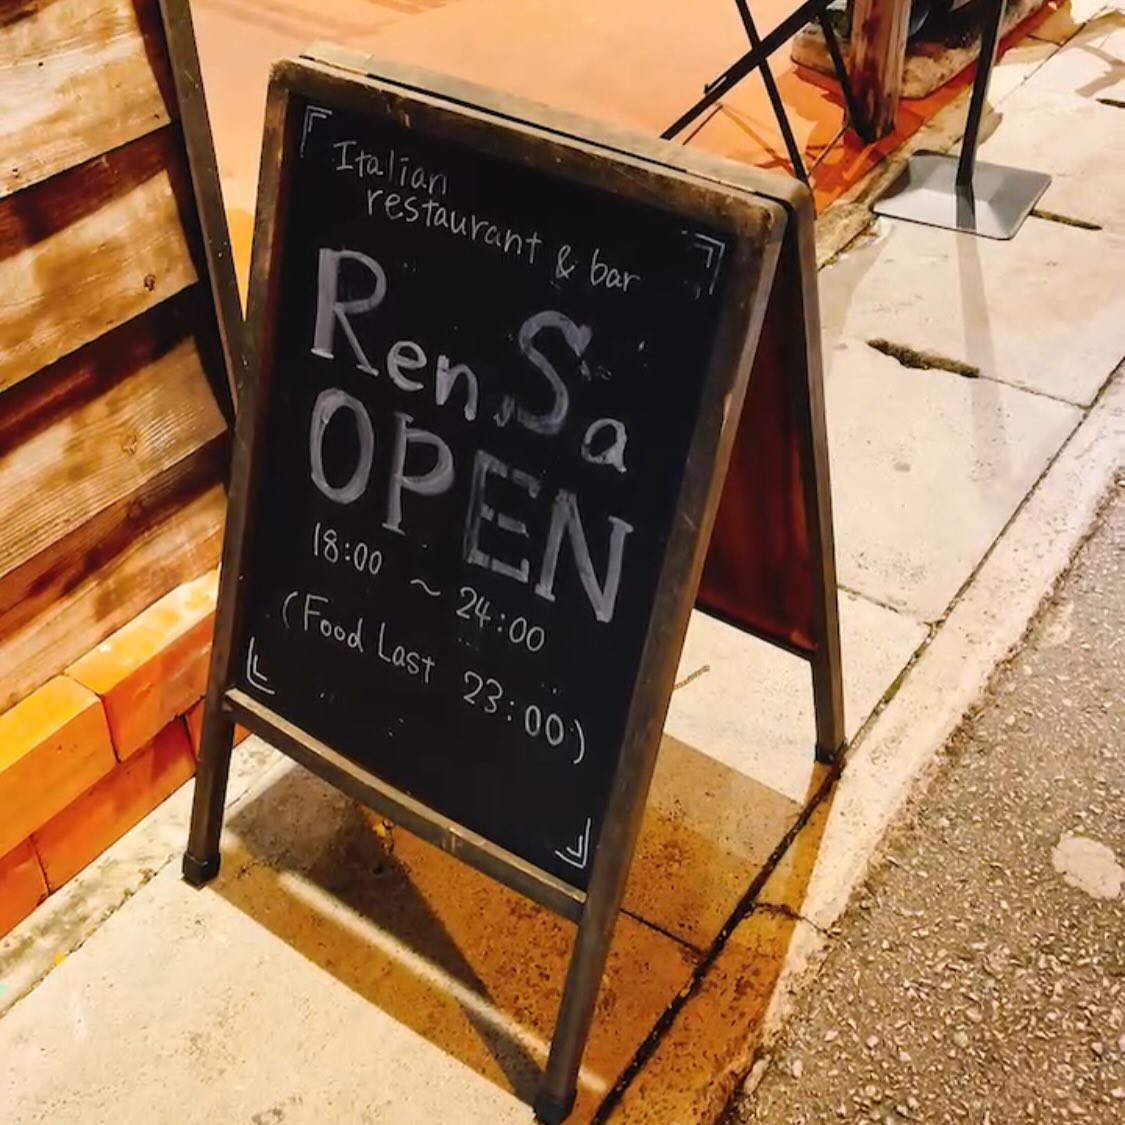 Italian
restaurant & bar
Ren.Sa
OPEN
18:00 ~ 24:00
(Food Last 23:00)